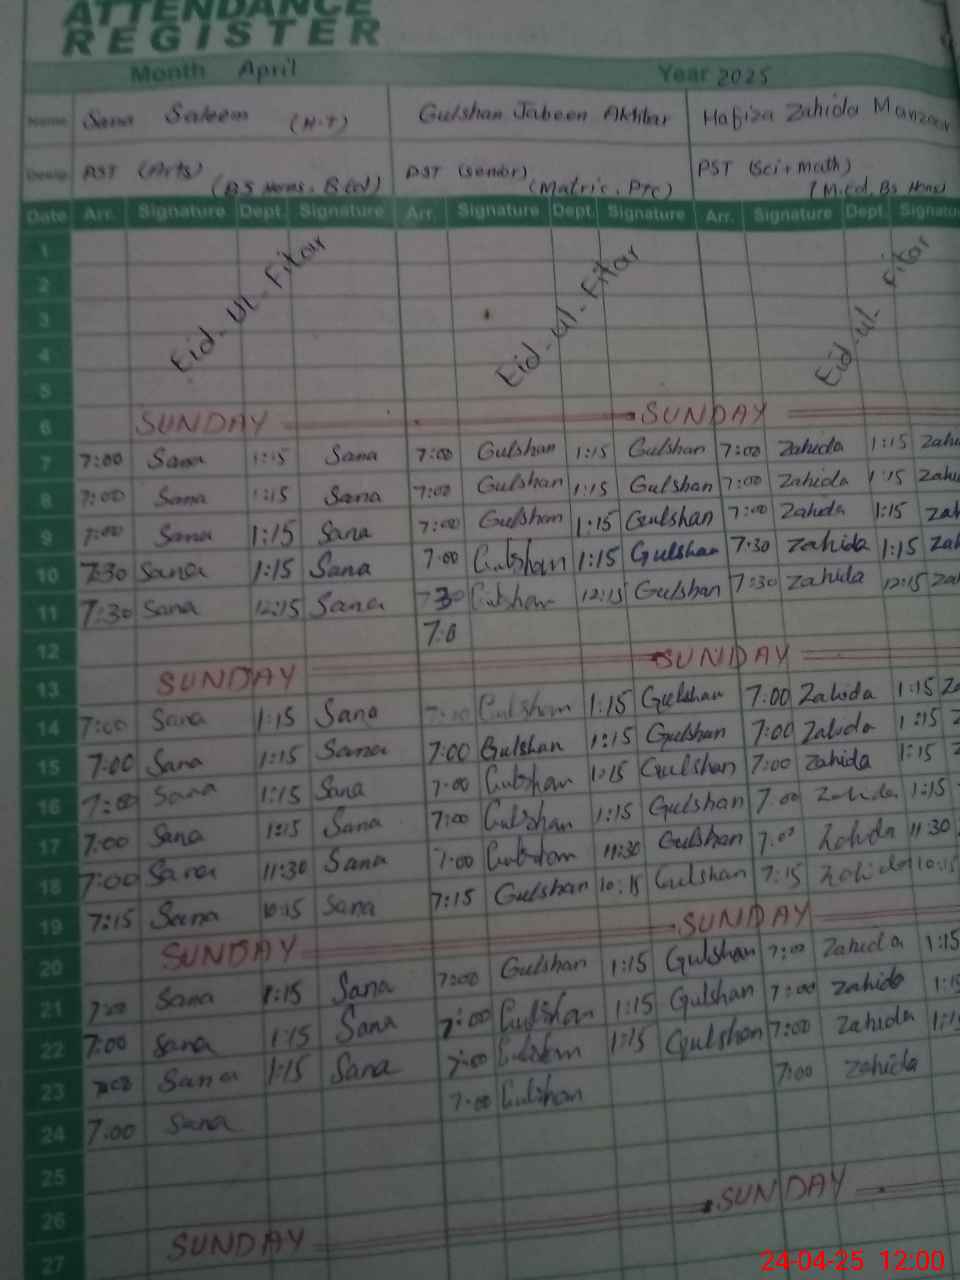 ATTENDANCE
REGISTER
Month April Year 2025
Name Sana Saleem (H.T) Gulshan Jabeen Akhtar Hafiza Zahida Manzoor
Desig. PST (Arts) (BS Hons, B.Ed) PST (senior) (Matric, PTC) PST (Sci+math) (M.Ed, Bs Hons)
Date Arr. Signature Dept. Signature Arr. Signature Dept. Signature Arr. Signature Dept. Signatu
1
2 Eid-Ul-Fitar Eid-ul-Fitar Eid-ul-Fitar
3
4
5
6 SUNDAY SUNDAY
7 7:00 Sana 1:15 Sana 7:00 Gulshan 1:15 Gulshan 7:00 Zahida 1:15 Zahi
8 7:00 Sana 1:15 Sana 7:00 Gulshan 1:15 Gulshan 7:00 Zahida 1:15 Zahi
9 7:00 Sana 1:15 Sana 7:00 Gulshan 1:15 Gulshan 7:00 Zahida 1:15 Zah
10 7:30 Sana 1:15 Sana 7:00 Gulshan 1:15 Gulshan 7:30 Zahida 1:15 Zah
11 7:30 Sana 12:15 Sana 7:30 Gulshan 12:15 Gulshan 7:30 Zahida 12:15 Za
12 7:0
13 SUNDAY SUNDAY
14 7:00 Sana 1:15 Sana Gulshan 1:15 Gulshan 7:00 Zahida 1:15 Za
15 7:00 Sana 1:15 Sana 7:00 Gulshan 1:15 Gulshan 7:00 Zahida 1:15 Z
16 7:00 Sana 1:15 Sana 7:00 Gulshan 1:15 Gulshan 7:00 Zahida 1:15 Z
17 7:00 Sana 1:15 Sana 7:00 Gulshan 1:15 Gulshan 7:00 Zahida 1:15
18 7:00 Sana 11:30 Sana 7:00 Gulshan 11:30 Gulshan 7:00 Zahida 11:30
19 7:15 Sana 10:15 Sana 7:15 Gulshan 10:15 Gulshan 7:15 Zahida 10:15
20 SUNDAY SUNDAY
21 7:00 Sana 1:15 Sana 7:00 Gulshan 1:15 Gulshan 7:00 Zahida 1:15
22 7:00 Sana 1:15 Sana 7:00 Gulshan 1:15 Gulshan 7:00 Zahida 1:15
23 7:00 Sana 1:15 Sana 7:00 Gulshan 1:15 Gulshan 7:00 Zahida 1:1
24 7:00 Sana 7:00 Gulshan 7:00 Zahida
25
26
27 SUNDAY SUNDAY
24-04-25 12:00